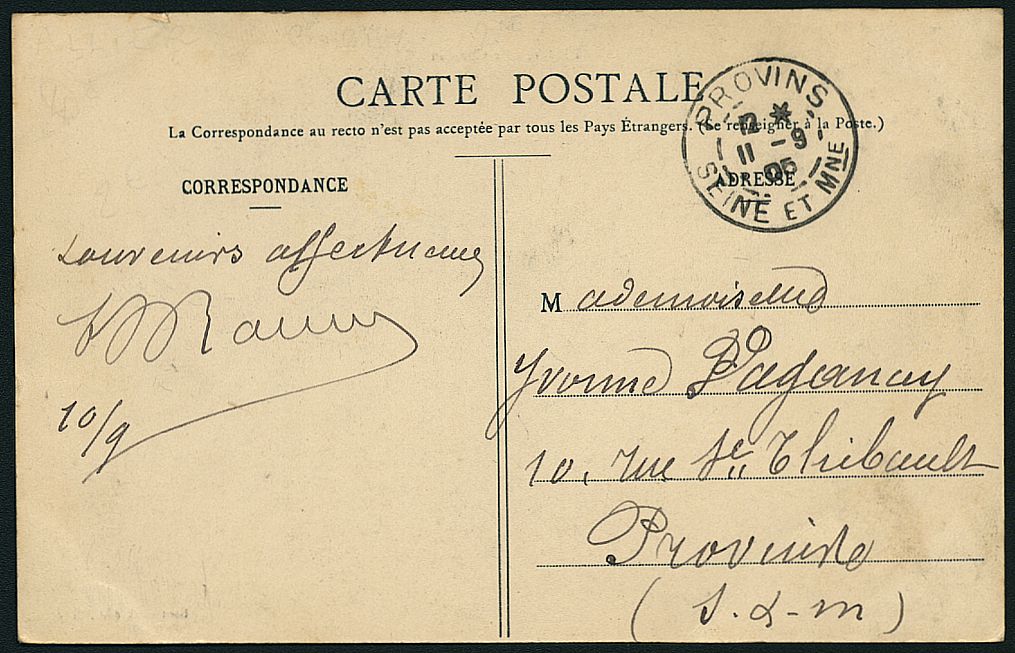 CARTE POSTALE
La Correspondance au recto n'est pas acceptée par tous les Pays Étrangers. (Se renseigner à la Poste.)
PROVINS
12 *
11 - 9
05
SEINE ET MNE
CORRESPONDANCE
ADRESSE
Souvenirs affectueux
10/9
Mademoiselle
Yvonne
10, rue St Thibault
Provins
(S.&-m)